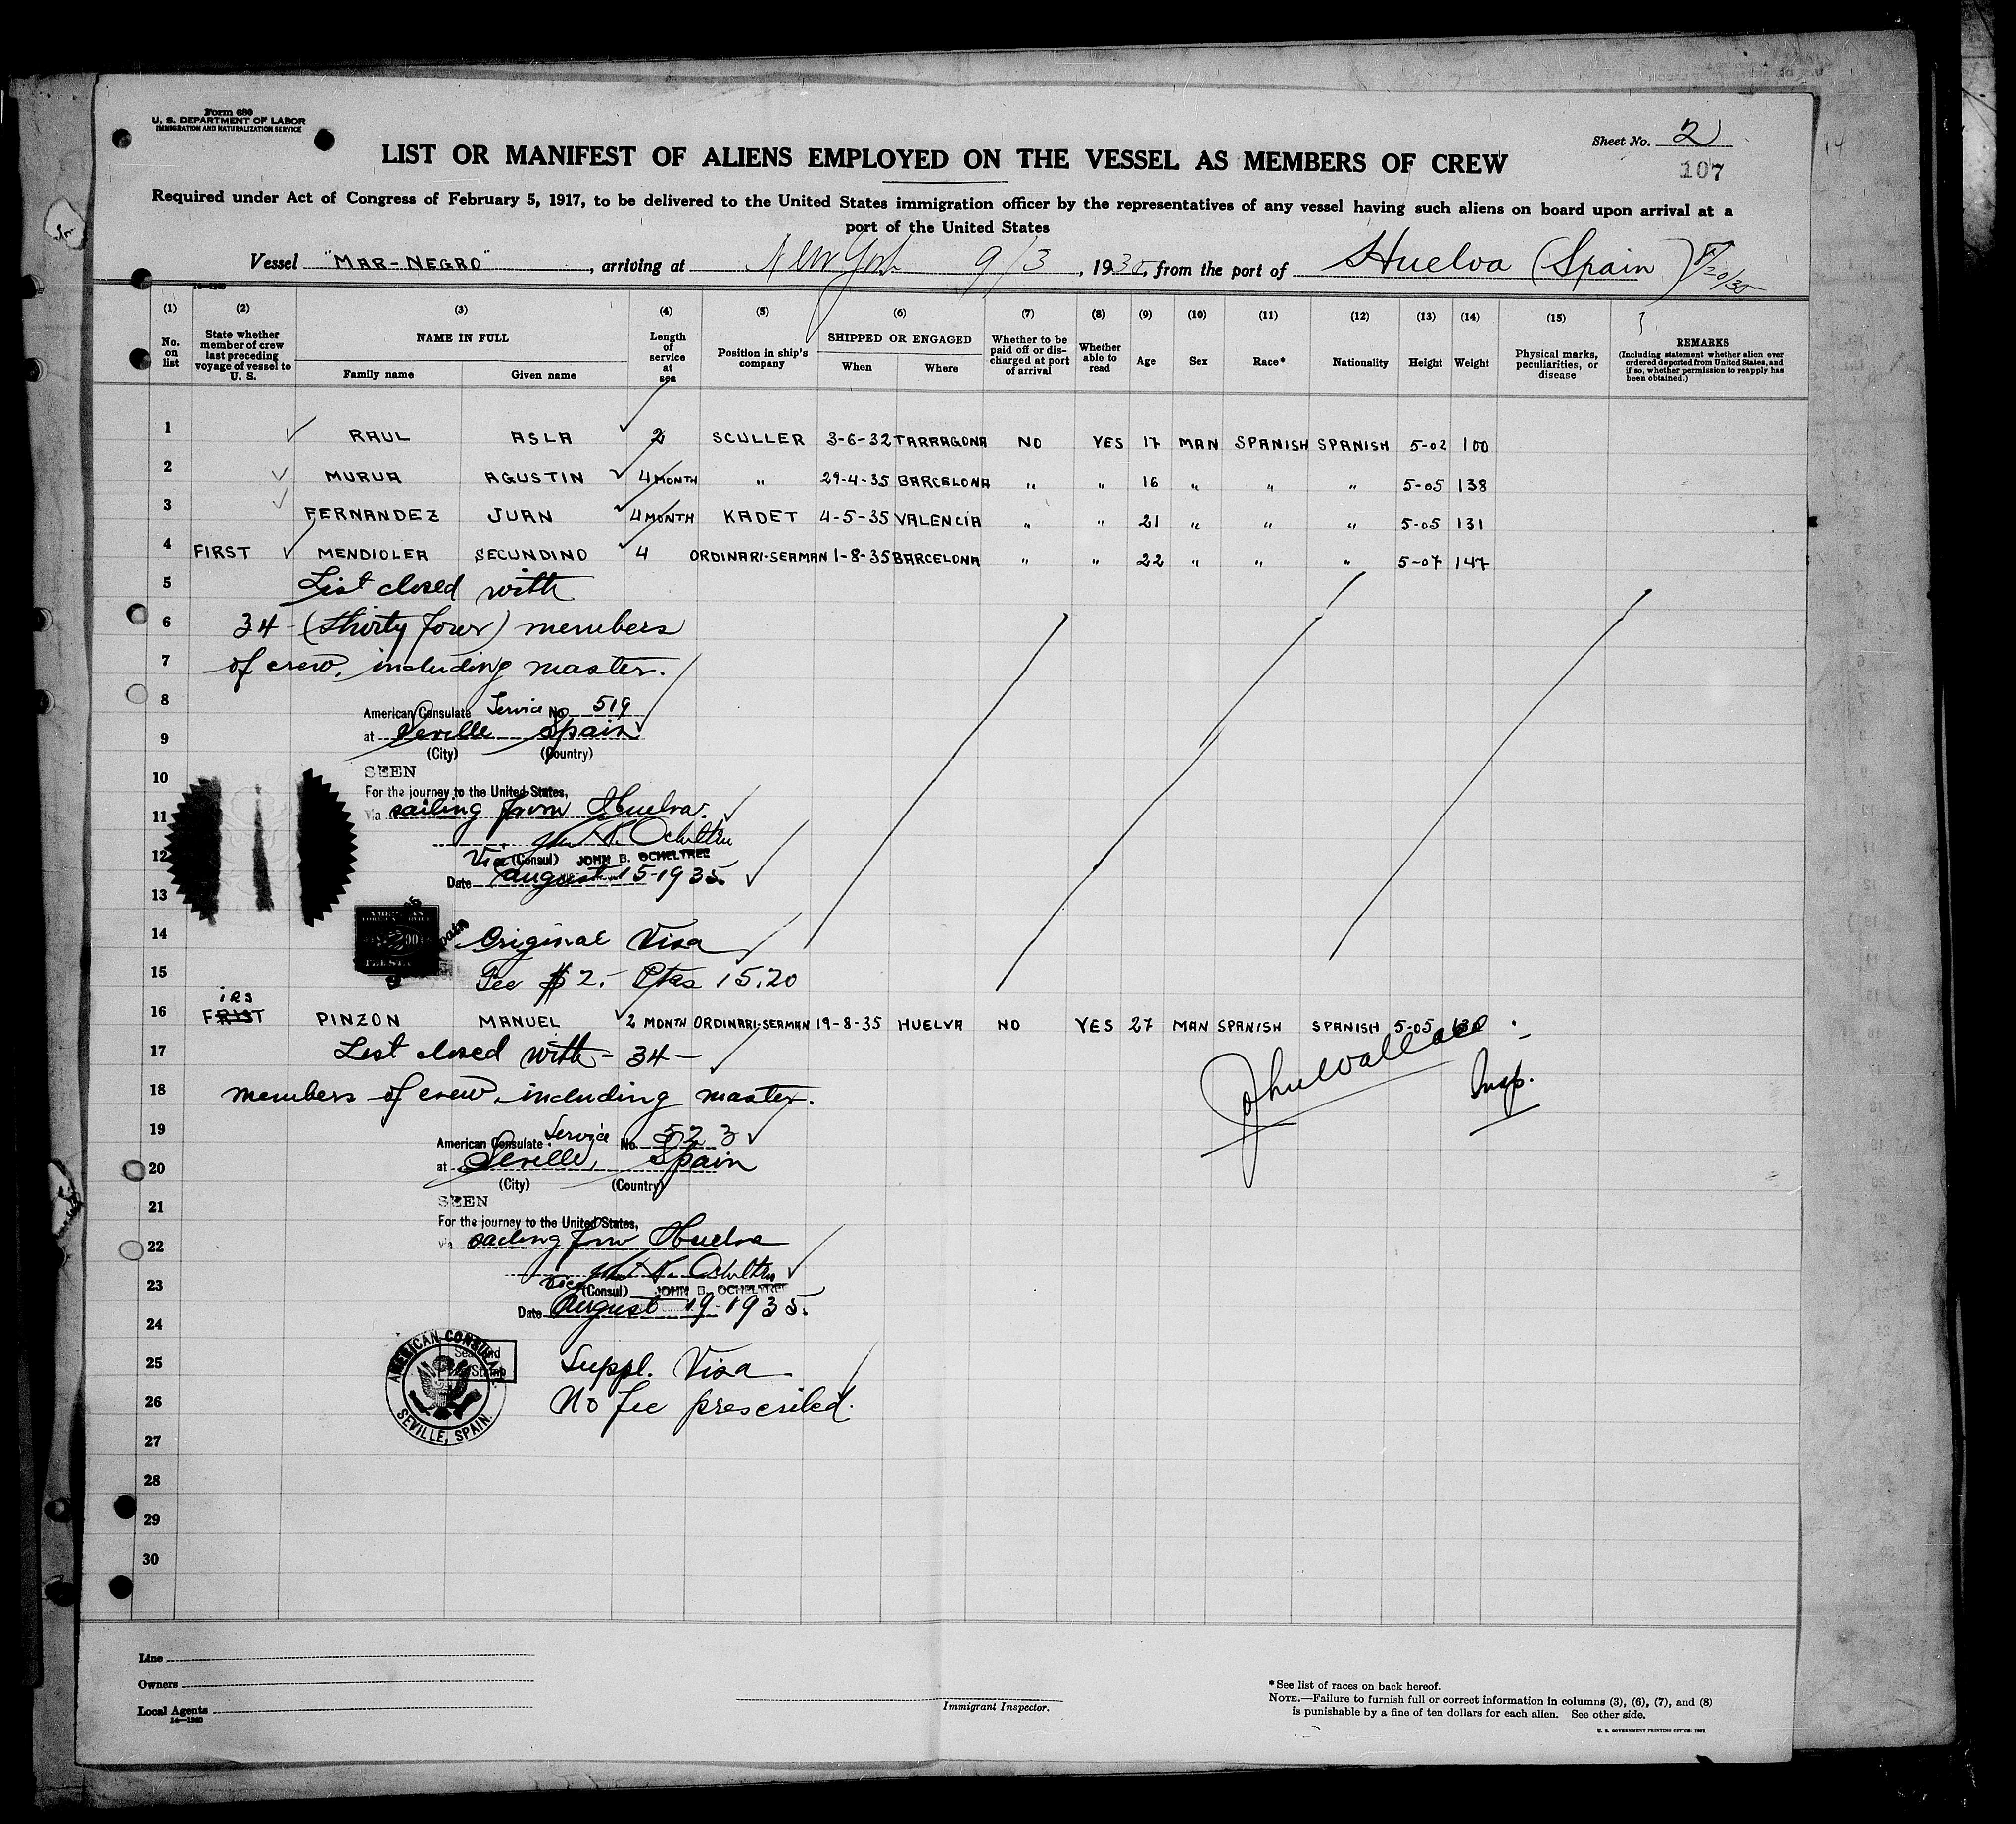 Form 680
U. S. DEPARTMENT OF LABOR
IMMIGRATION AND NATURALIZATION SERVICE
Sheet No. 2
107
LIST OR MANIFEST OF ALIENS EMPLOYED ON THE VESSEL AS MEMBERS OF CREW
Required under Act of Congress of February 5, 1917, to be delivered to the United States immigration officer by the representatives of any vessel having such aliens on board upon arrival at a
port of the United States
Vessel "MAR-NEGRO", arriving at New York 9/3, 1935, from the port of Huelva (Spain)
(1) (2) (3) (4) (5) (6) (7) (8) (9) (10) (11) (12) (13) (14) (15)
No. on list
State whether member of crew last preceding voyage of vessel to U. S.
NAME IN FULL
Family name
Given name
Length of service at sea
Position in ship's company
SHIPPED OR ENGAGED
When
Where
Whether to be paid off or discharged at port of arrival
Whether able to read
Age
Sex
Race*
Nationality
Height
Weight
Physical marks, peculiarities, or disease
REMARKS
(Including statement whether alien ever ordered deported from United States, and if so, whether permission to reapply has been obtained.)
1 RAUL ASLA 2 SCULLER 3-6-32 TARRAGONA NO YES 17 MAN SPANISH SPANISH 5-02 100
2 MURUA AGUSTIN 4 MONTH " 29-4-35 BARCELONA " " 16 " " " 5-05 138
3 FERNANDEZ JUAN 4 MONTH KADET 4-5-35 VALENCIA " " 21 " " " 5-05 131
4 FIRST MENDIOLEA SECUNDINO 4 ORDINARI-SEAMAN 1-8-35 BARCELONA " " 22 " " " 5-07 147
5 List closed with
6 34 - (thirty four) members
7 of crew, including master.
8 American Consulate Service No. 519
9 at Seville Spain
(City) (Country)
10 SEEN
For the journey to the United States,
11 via sailing from Huelva.
John B. Ocheltree
12 Vice (Consul) JOHN B. OCHELTREE
Date August 15-1935.
13
14 Original Visa
15 Fee $2.- Ptas 15.20
irs
16 FRIST PINZON MANUEL 2 MONTH ORDINARI-SEAMAN 19-8-35 HUELVA NO YES 27 MAN SPANISH SPANISH 5-05
17 List closed with - 34 -
John Wallace
18 members of crew, including master.
Insp.
19 American Consulate Service No. 523
20 at Seville, Spain
(City) (Country)
21 SEEN
For the journey to the United States,
22 via sailing from Huelva
John B. Ocheltree
23 Vice (Consul) JOHN B. OCHELTREE
Date August 19-1935.
24
AMERICAN CONSULATE
SEVILLE, SPAIN.
25 Suppl. Visa
26 No fee prescribed.
27
28
29
30
Line
Owners
Local Agents
14—1240
Immigrant Inspector.
*See list of races on back hereof.
NOTE.—Failure to furnish full or correct information in columns (3), (6), (7), and (8)
is punishable by a fine of ten dollars for each alien. See other side.
U. S. GOVERNMENT PRINTING OFFICE: 1931